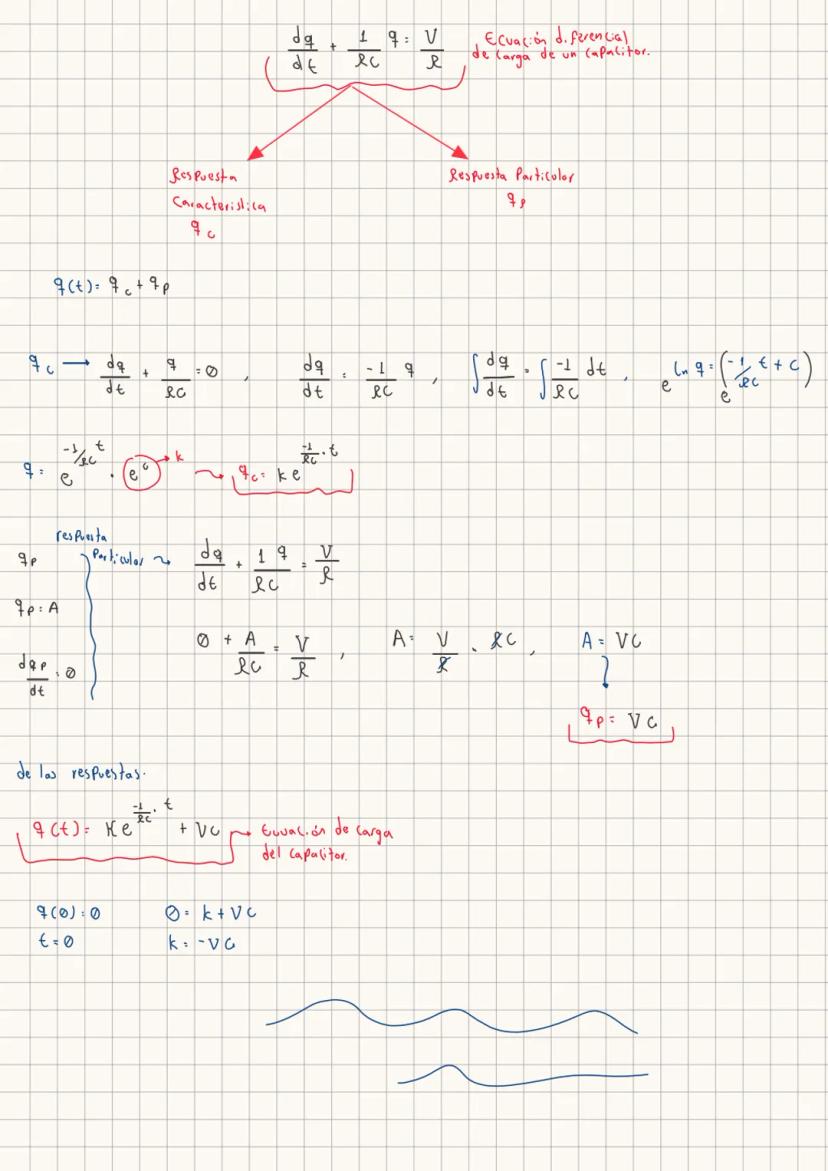 dq/dt + 1/RC q = V/R Ecuación diferencial de carga de un capacitor.
Respuesta Respuesta Particular
Caracteristica q_p
q_c
q(t) = q_c + q_p
q_c → dq/dt + q/RC = 0 , dq/dt = -1/RC q , ∫ dq/dt = ∫ -1/RC dt , e^(ln q) = e^(-1/RC t + c)
q = e^(-1/RC t) · e^c → k ⤳ q_c = k e^(-1/RC · t)
respuesta
q_p Particular ⤳ dq/dt + 1 q/RC = V/R
q_p = A
dq_p/dt = 0 0 + A/RC = V/R , A = V/R · RC , A = VC
q_p = VC
de las respuestas.
q(t) = K e^(-1/RC · t) + VC → Ecuación de carga
del capacitor.
q(0) = 0 0 = k + VC
t = 0 k = -VC